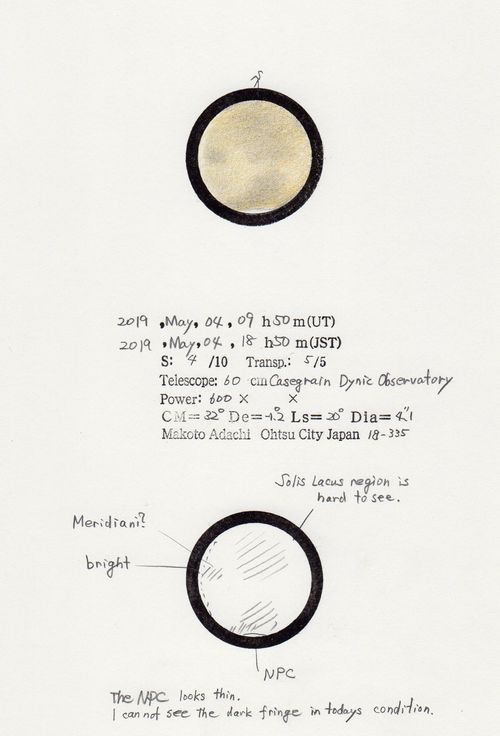 S
2019 , May, 04 , 09 h 50 m (UT)
2019 , May, 04 , 18 h 50 m (JST)
S: 4 /10 Transp.: 5/5
Telescope: 60 cm Casegrain Dynic Observatory
Power: 600 × ×
CM= 32° De= Ls= 20° Dia= 4.″1
Makoto Adachi Ohtsu City Japan 18-335
Solis Lacus region is
hard to see.
Meridiani?
bright
NPC
The NPC looks thin.
I can not see the dark fringe in todays condition.